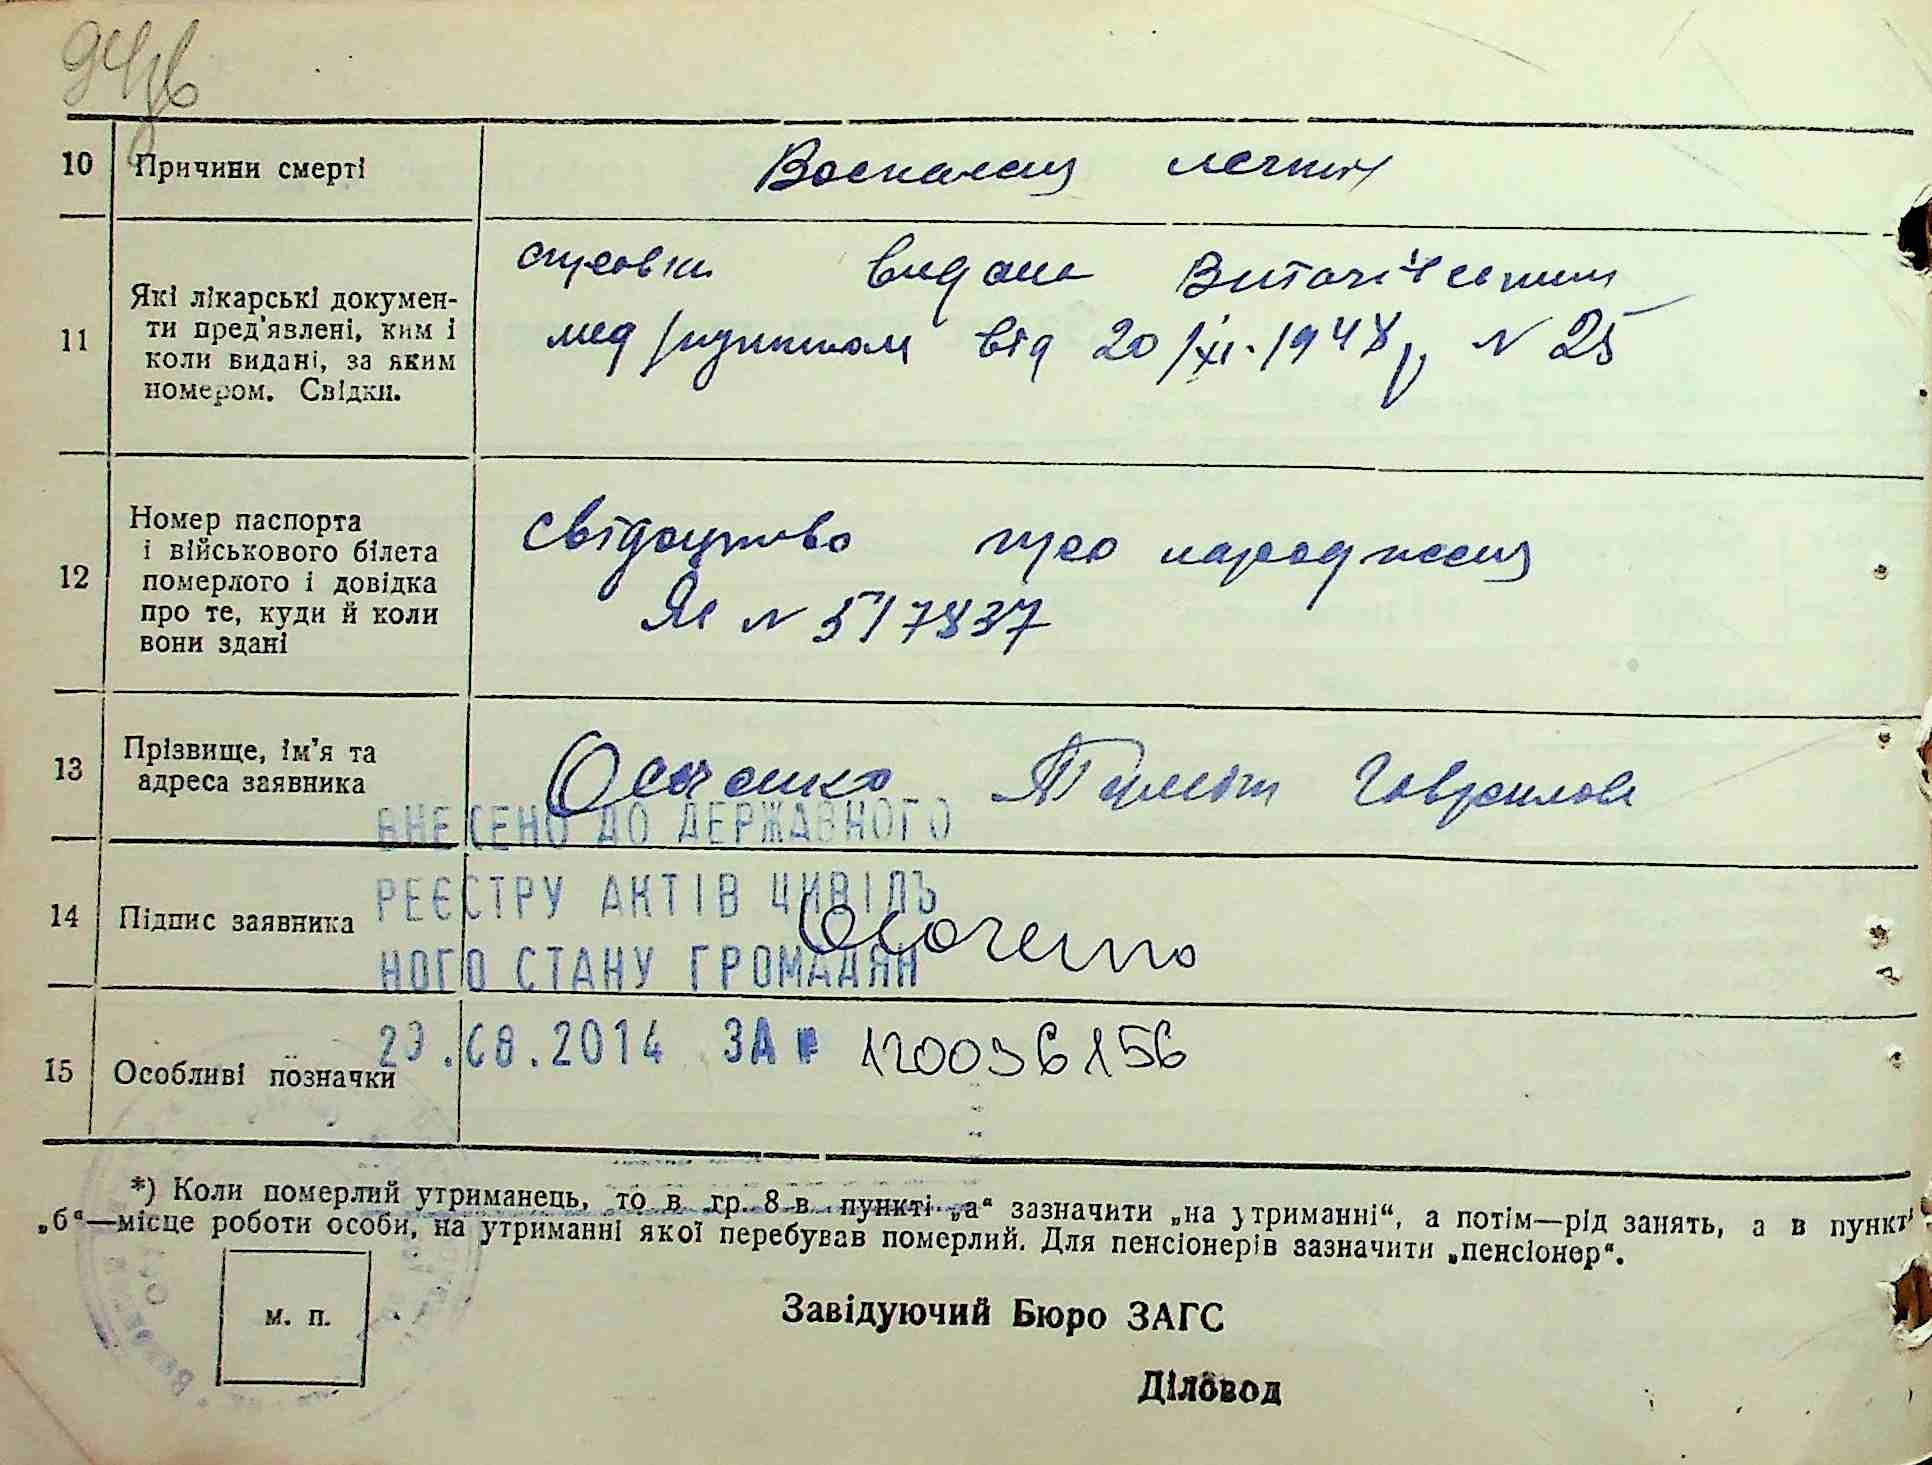 10 Причини смерті Воспаления легких
11 Які лікарські докумен-
ти пред'явлені, ким і
коли видані, за яким
номером. Свідки.
справки видана Витачівским
мед/пунктом від 20/XI-1948р. N 25
12 Номер паспорта
і військового білета
померлого і довідка
про те, куди й коли
вони здані
свідоцтво про народження
N 517837
13 Прізвище, ім'я та
адреса заявника
Осаченко Гаврилов
ВНЕСЕНО ДО ДЕРЖАВНОГО
РЕЄСТРУ АКТІВ ЦИВІЛЬ
НОГО СТАНУ ГРОМАДЯН
14 Підпис заявника Осаченко
29.08.2014 ЗА № 120036156
15 Особливі позначки
*) Коли померлий утриманець, то в гр. 8 в пункті „а“ зазначити „на утриманні“, а потім—рід занять, а в пункті
„б“—місце роботи особи, на утриманні якої перебував померлий. Для пенсіонерів зазначити „пенсіонер“.
м. п.
Завідуючий Бюро ЗАГС
Діловод